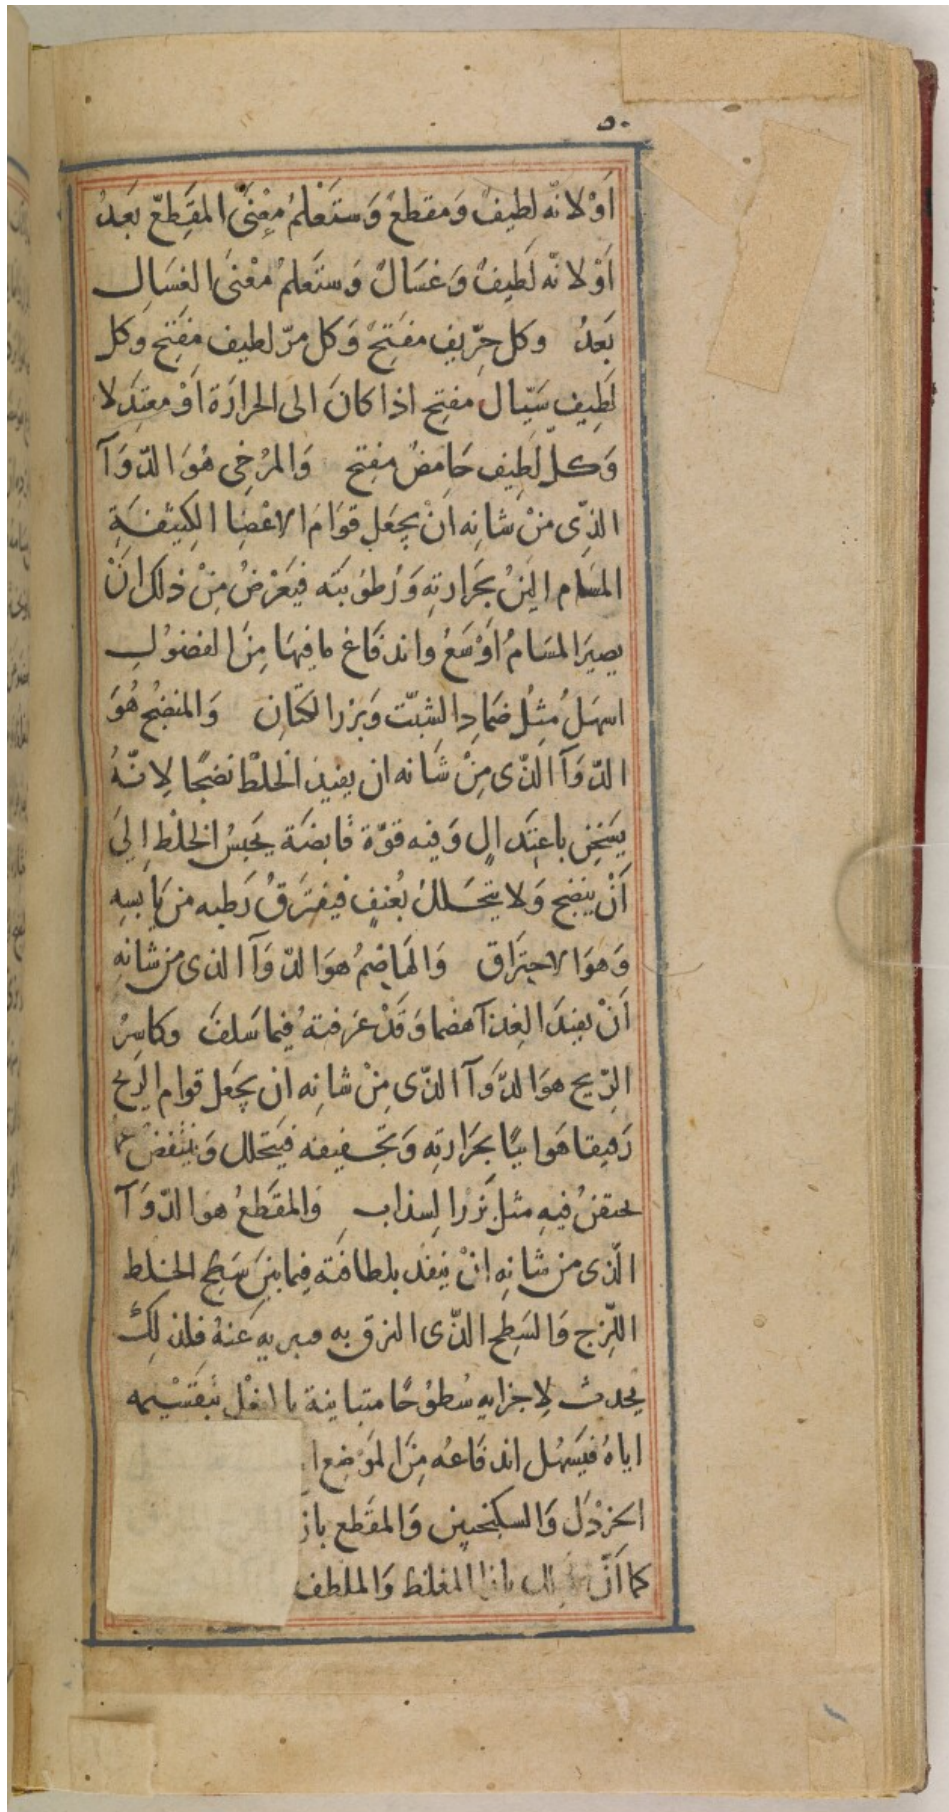 ٥٠
اَوْ لانّه لطيفٌ وَمقطعٌ وَستَعْلمُ مَعْنَى المقَطِعّ بَعدُ
اَوْ لانّه لَطِيفٌ وَغسَالٌ وَستَعلمُ مَعْنىَ الغسَالِ
بَعدُ وكل حِرّيفٍ مفَتِحٌ وَكل مرّ لطيف مفَتِح وَكل
لَطِيفٍ سَيّال مفتِح اذا كانَ الى الحرارَة اَوْ معتِدَلا
وَكلّ لَطِيفٍ حَامِضٌ مفِتح وَالمرُخِى هُوَ الدّوَآ
الذّى منْ شانِه انْ يجعَل قوَامَ الاعْضا الكِثيفَة
المسَامِ الينُ بحَرارتِهِ وَرُطوُبتَه فيَعْرَضُ مِنْ ذلك انْ
يصيرَ المسَامُ اوْسَعُ واندفَاع ما فيهَا مِنَ الفضوُلِ
اسهَلُ مثِلُ ضَمادِ الشبّت وَبزر الكَتّانِ وَالمنضِجُ هُوَ
الدّوَآ الذّى مِنْ شَانه ان يفيدَ الخلطْ نضجًا لاِنّهُ
يسَخنِ باعتِدَالٍ وَفيه قوّة قابضَة يحَبسُ الخلطِ اِلىَ
اَنْ ينضج وَلا يتحَللُ بعُنفٍ فيفترَقُ رَطبه من يَابسِهِ
وَهوَ الاحتِرَاق وَالهاضِمُ هوَ الدّوَآ الذى من شانِهِ
اَنْ يفيدَ الغِذآ هضما وَقَدْ عَرَفتهُ فيما سَلفَ وكاسِرُ
الرّيحِ هوَ الدّوَآ الذّى مِنْ شانِه ان يجَعل قوام الرّيح
رَقيقا هَوائيًا بحرَارتِهِ وَتجَفيفه فيَتحلل وَينتفض عمّا
يحتقنُ فيهِ مثل بَزر السذاب وَالمقَطعُ هوَ الدّوَآ
الّذى من شانِه انْ ينفذ بلطافتَه فيما بينَ سَطحِ الخلط
اللّزِج وَالسَطِح الذّى التزق به فيبريه عَنهُ فلذلِكَ
يُحدث لاِجزايه سُطوُحًا متبَاينة بالفعْل بتَقسْيمه
اياهُ فيَسهُل اندفَاعُه مِنَ الموَضِع
الخرْدَل وَالسكنجبين وَالمقَطع باز
كما اَنّ بازا المغلظ وَالملطف